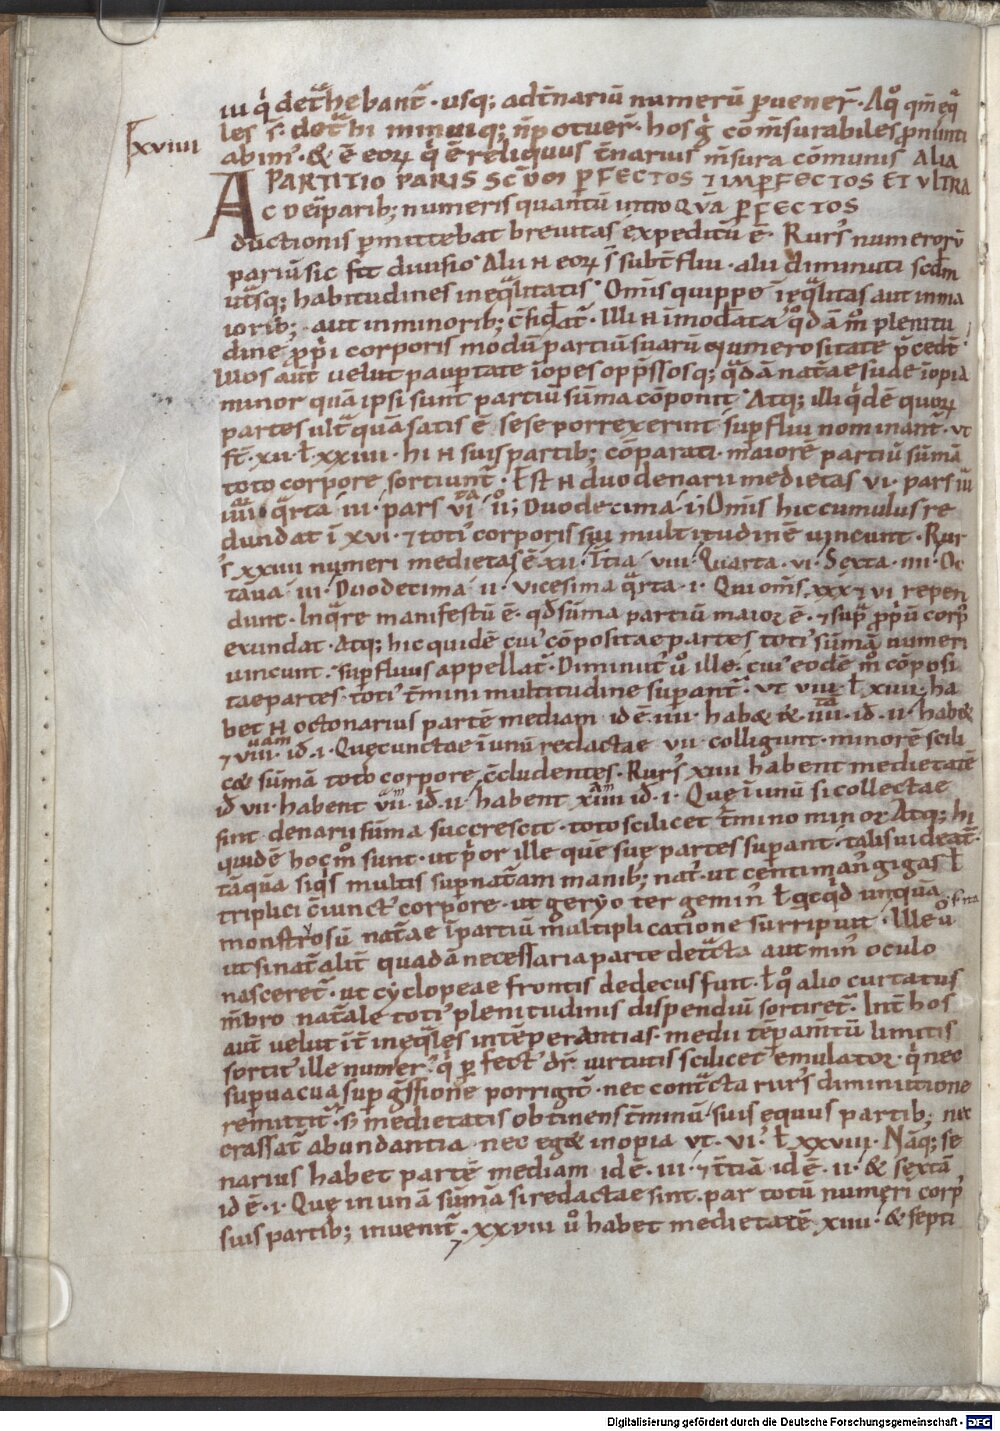 iii q̇ det̄hebant̄ · usq; ad t̄nariū numerū ꝑuener̄ · Aq̊ qm̄ eq̄
les s̄ · det̄hi minuiq; n̄ potuer̄ · hos ḡ com̄surabiles ꝓnunti
abim᾽ · & ē eoꝝ q̇ ē reliquus t̄narius m̄sura cōmunis ALIA
xviiii
PARTITIO PARIS SC̄DM PERFECTOS ⁊ IMPERFECTOS ET ULTRA
AC de īparib; numeris quantū intro QUĀ PERFECTOS
ductionis ꝑmittebat brevitas expeditū ē · Rurs᾽ numerorū
pariū sic fit divisio Alii ɴ eoꝝ s̄ subt̄flui · alii diminuti scd̄m
ut̄sq; habitudines ineq̄litatis · Om̄is quippe ineq̄litas aut in ma
iorib; · aut in minorib; c̄sid̄at̄ · Illi ɴ īmod̄ata q̊dā m̊ plenitu
dine ꝓprii corporis modū partiū suarū numerositate p̄cedt̄
Illos aut̄ velut pauꝑtate īopes opp̄ssosq; q̄dā nat̄ae suae īopia
minor quā ipsi sunt partiū sūma cōponit · Atq; illi q̇dē quoꝝ
partes ult̄ quā satis ē sese porrexerint suꝑflui nominant̄ · ut
st̄ · xii · ł xxiiii · hi ɴ suis partib; cōparati · maiorē partiū sūmā
toto corpore sortiunt̄ · Est ɴ duodenarii medietas vi · pars iii
iiii · q̄rta iii · pars vi ii; Duodecima · i; Om̄is hic cumulus re
dundat ī xvi · ⁊ toti᾽ corporis sui multitudinē vincunt · Rur
s᾽ xxiiii numeri medietas ē xii · T̄tia viii · Quarta · vi · Sexta · iiii · Oc
tāva · iii · Duodecima · ii · vicesima q̄rta · i · Qui om̄s xxx ⁊ vi repen
dunt · In q̄re manifestū ē · qd̄ sūma partiū maior ē · ⁊ sup̄ ꝓpriū corp᾽
exundat · Atq; hic quidē cui᾽ cōpositae partes toti᾽ sūmā numeri
vincunt · suꝑfluus appellat̄ · Diminut᾽ ů ille · cui᾽ eodē m̊ cōposi
tae partes · toti᾽ t̄mini multitudine suꝑant̄ · ut viii · ł xiiii · ha
bet ɴ octonarius partē mediam id ē · iiii · hab& & · iiii · id · ii · hab&
⁊ viii · id · i · Quę cunctae ī unū redactae vii colligunt · minorē scili
c& sūmā toto corpore c̄cludentes · Rurs᾽ xiiii habent medietatē
id̄ vii · habent vii · id̄ · ii · habent xiiii id̄ · i · Quę ī unū si collectae
sint denarii sūma succrescit · toto scilicet t̄mino minor Atq; hi
quidē hoc m̊ sunt · ut p̊or ille quē suę partes suꝑant · talis videat̄
tāqua siq̇s multis sup nat̄am manib; nat᾽ · ut centimaň gigas ł
triplici c̄iunct᾽ corpore · ut geryo ter gemin᾽ ł qcq̇d unqua
monstrosū nat̄ae ī partiū multiplicatione surripuit · Ille ů
ut si nat̄alit̄ quadā necessaria parte det̄cta aut min᾽ oculo
nasceret̄ · ut cyclopeae frontis dedecus fuit · ł q̊ alio curtatus
m̄bro nat̄ale toti᾽ plenitudinis dispendiū sortiret̄ · Int̄ hos
aut̄ velut īt̄ inęq̄les intēꝑerantias · medii tēꝑam̄tū limitis
sortit᾽ ille numer᾽ · q̇ ꝑfect᾽ dr̄ · virtutis scilicet emulator · q̇ nec
suꝑvacua suꝑ ḡssione porrigit̄ · nec cont̄cta rurs᾽ diminutione
remittit̄ · s̄ medietatis obtinens t̄minū · suis equus partib; nec
crassat̄ abundantia · nec eg& inopia ut · vi · ł xxviii · Nāq; se
narius habet partē mediam id ē · iii · ⁊ t̄tiā id ē · ii · & sextā
id ē · i · Quę in unā sūmā si redactae sint · par totū numeri corp᾽
suis partib; invenit̄ · xxviii ů habet medietatē xiiii · & septi
Digitalisierung gefördert durch die Deutsche Forschungsgemeinschaft - DFG